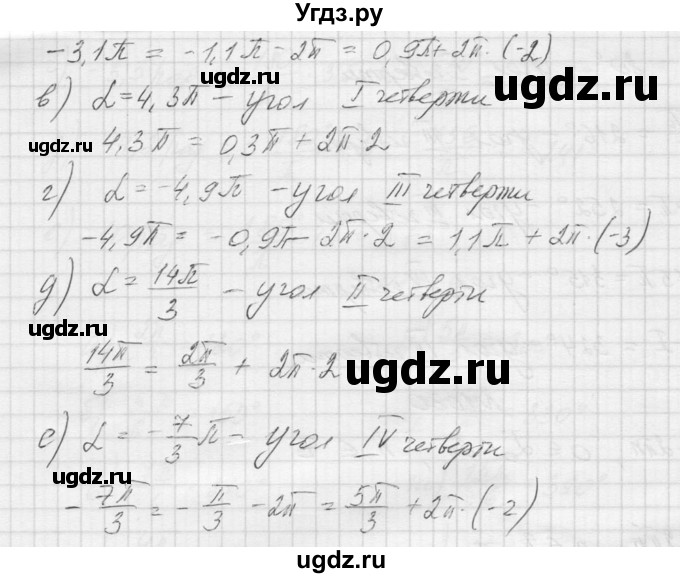 Угдз.ру
-3,1π = -1,1π - 2π = 0,9π + 2π·(-2)
в) α = 4,3π - угол I четверти
ugdz.ru
ugdz.ru
4,3π = 0,3π + 2π·2
ugdz.ru
г) α = -4,9π - угол III четверти
-4,9π = -0,9π - 2π·2 = 1,1π + 2π·(-3)
д) α = 14π/3 - угол II четверти
ugdz.ru
14π/3 = 2π/3 + 2π·2
ugdz.ru
е) α = -7/3 π - угол IV четверти
-7π/3 = -π/3 - 2π = 5π/3 + 2π·(-2)
ugdz.ru